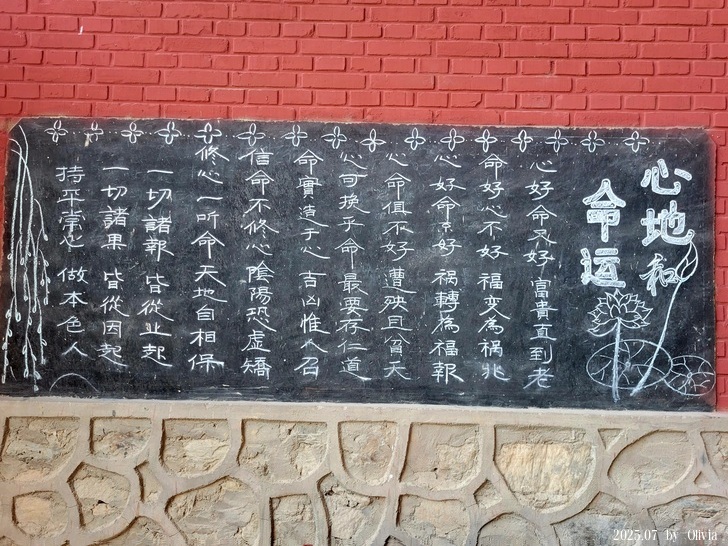 心地和
命运
心好命又好 富貴直到老
命好心不好 福变為祸兆
心好命不好 祸轉為福報
心命俱不好 遭殃且貧夭
心可挽乎命 最要存仁道
命實造于心 吉凶惟人召
信命不修心 陰陽恐虚矯
修心一听命 天地自相保
一切諸報 皆從业起
一切諸果 皆從因起
持平常心 做本色人
2025.07 by Olivia